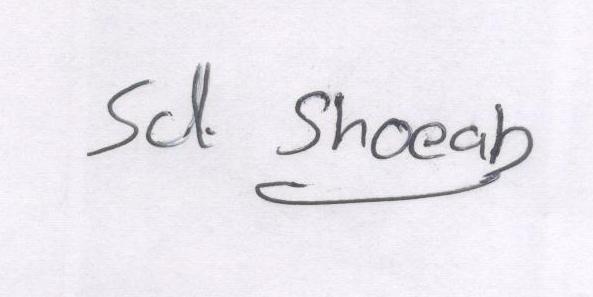 Sd. Shoeab